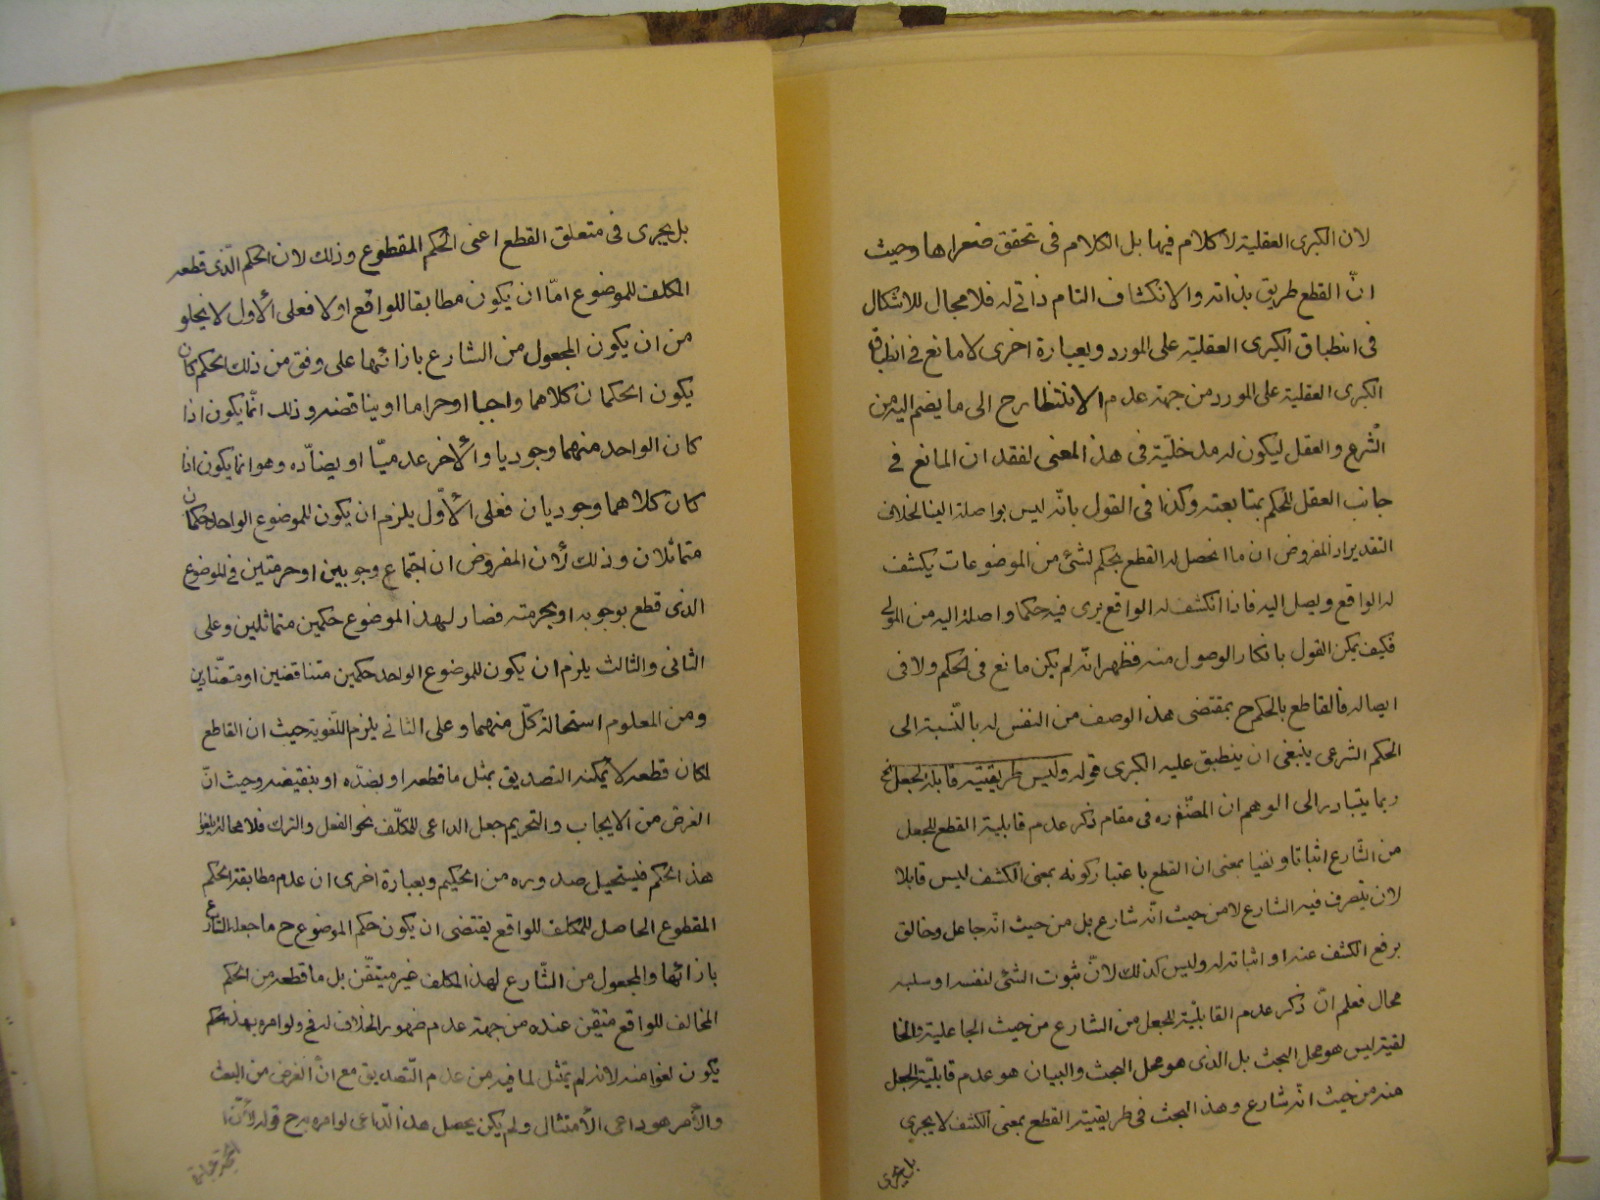 لان الكبرى العقلية لا كلام فيها بل الكلام فى تحقق صغراها وحيث
انّ القطع طريق بذاته والانكشاف التام ذاتى له فلا مجال للاشكال
فى انتطباق الكبرى العقلية على المورد وبعبارة اخرى لا مانع فى انطباق
الكبرى العقلية على المورد من جهة عدم الانتظار ح الى ما يضم اليه من
الشرع والعقل ليكون له مدخليّة فى هذ المعنى لفقد ان المانع فى
جانب العقل للحكم بمتابعته وكذا فى القول بانّه ليس بواصلة الينا لخلاف
التقدير اذ المفروض ان ما انحصل له القطع بحكم لشئ من الموضوعات يكشف
له الواقع ويصل اليه فاذا انكشف له الواقع يرى فيه حكما واصلة اليه من المولى
فكيف يمكن القول بانكار الوصول منه فظهر انّه لم يكن مانع فى الحكم ولا فى
ايصاله فالقاطع بالحكم ح بمقتضى هذ الوصف من النفس له بالنّسبة الى
الحكم الشرعى ينبغى ان ينطبق عليه الكبرى قوله وليس طريقيته قابلة لجعل
ربما يتبادر الى الوهم ان المصنّف ره فى مقام ذكر عدم قابلية القطع للجعل
من الشّارع اثباتا ونفيا بمعنى ان القطع باعتبار كونه بمعنى الكشف ليس قابلا
لان يتصرف فيه الشارع لا من حيث انّه شارع بل من حيث انّه جاعل وخالق
برفع الكشف عنه او اثباته له وليس كذلك لانّ ثبوت الشئ لنفسه او سلبه
محال فعلم انّ ذكر عدم القابلية للجعل من الشارع من حيث الجاعلية والخا
لقية ليس هو محل البحث بل الذى هو محل البحث والبيان هو عدم قابليّة الجعل
منه من حيث انّه شارع وهذ البحث فى طريقيته القطع بمعنى الكشف لا يجرى
بل يجرى
بل يجرى فى متعلق القطع اعنى الحكم المقطوع وذلك لان الحكم الّذى قطعه
المكلف للموضوع امّا ان يكون مطابقا للواقع او لا فعلى الأول لا يخلو
من ان يكون المجعول من الشارع بازائها على وفق من ذلك الحكم كان
يكون الحكمان كلاهما واجبا او حراما او يناقضه وذلك انّما يكون اذا
كان الواحد منهما وجوديا والأخر عدميّا او يضاّده وهو انما يكون اذا
كان كلاهما وجوديان فعلى الأوّل يلزم ان يكون للموضوع الواحد حكمان
متماثلان وذلك لأن المفروض ان اجتماع وجوبين او حرمتين فى الموضوع
الذى قطع بوجوبه او بحرمته فصار لهذ الموضوع حكمين متماثلين وعلى
الثانى والثالث يلزم ان يكون للموضوع الواحد حكمين متناقضين او متضّادين
ومن المعلوم استحالة كلّ منهما وعلى الثانى يلزم اللّغوية حيث ان القاطع
لمكان قطعه لا يمكنه التصديق بمثل ما قطعه او بضدّه او بنقيضه وحيث انّ
الغرض من الايجاب والتحريم جعل الداعى للمكلّف نحو الفعل والترك فلا محالة يلغو
هذ الحكم فيستحيل صدوره من الحكيم وبعبارة اخرى ان عدم مطابقة الحكم
المقطوع الحاصل للمكلف للواقع يقتضى ان يكون حكم الموضوع ح ما جعله الشارع
بازائها والمجعول من الشّارع لهذ المكلف غير متيقّن بل ما قطعه من الحكم
المخالف للواقع متيقن عنده من جهة عدم ظهور الخلاف له فح ولو امره بهذ الحكم
يكون لغوا منه لانه لم يمتثل لما فيه من عدم التّصديق مع انّ الغرض من البعث
والأمر هو داعى الأمتثال ولم يكن يحصل هذ الدّاعى لو امره ح قوله